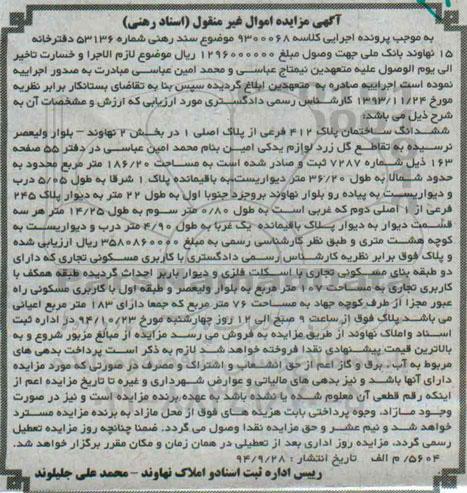 آگهی مزایده اموال غیر منقول (اسناد رهنی)
به موجب پرونده اجرایی کلاسه ۹۳۰۰۰۶۸ موضوع سند رهنی شماره ۵۳۱۳۶ دفترخانه
۱۵ نهاوند بانک ملی جهت وصول مبلغ ۱۲۹۶۰۰۰۰۰۰ ریال موضوع لازم الاجرا و خسارت تاخیر
الی یوم الوصول علیه متعهدین نیمتاج عباسی و محمد امین عباسی مبادرت به صدور اجراییه
نموده است اجراییه صادره به متعهدین ابلاغ گردیده سپس بنا به تقاضای بستانکار برابر نظریه
مورخ ۱۳۹۳/۱۱/۲۴ کارشناس رسمی دادگستری مورد ارزیابی که ارزش و مشخصات آن به
شرح ذیل می باشد:
ششدانگ ساختمان پلاک ۴۱۲ فرعی از پلاک اصلی ۱ در بخش ۲ نهاوند - بلوار ولیعصر
نرسیده به تقاطع گل زرد لوازم یدکی امین بنام محمد امین عباسی در دفتر ۵۵ صفحه
۱۶۳ ذیل شماره ۷۲۸۷ ثبت و صادر شده است به مساحت ۱۸۶/۲۰ متر مربع محدود به
حدود شمالا به طول ۳۶/۲۰ متر دیواریست به باقیمانده پلاک ۱ شرقا به طول ۵/۰۵ درب
و دیواریست به پیاده رو بلوار نهاوند بروجرد جنوبا اول به طول ۲۲ متر به دیوار پلاک ۲۴۵
فرعی از ۱ اصلی دوم که غربی است به طول ۰/۸۰ متر سوم به طول ۱۴/۲۵ متر هر سه
قسمت دیوار به دیوار پلاک باقیمانده یک غربا به طول ۴/۹۰ متر درب و دیواریست به
کوچه هشت متری و طبق نظر کارشناسی رسمی به مبلغ ۳۵۸۰۸۶۰۰۰۰ ریال ارزیابی شده
و پلاک فوق برابر نظریه کارشناس رسمی دادگستری با کاربری مسکونی تجاری که دارای
دو طبقه بنای مسکونی تجاری با اسکلت فلزی و دیوار باربر احداث گردیده طبقه همکف با
کاربری تجاری به مساحت ۱۰۷ متر مربع به بلوار ولیعصر و طبقه اول با کاربری مسکونی راه
عبور مجزا از طرف کوچه جهاد به مساحت ۷۶ متر مربع که جمعا دارای ۱۸۳ متر مربع اعیانی
می باشد پلاک فوق از ساعت ۹ صبح الی ۱۲ روز چهارشنبه مورخ ۹۴/۱۰/۲۳ در اداره ثبت
اسناد و املاک نهاوند از طریق مزایده به فروش می رسد مزایده از مبالغ مزبور شروع و به
بالاترین قیمت پیشنهادی نقدا فروخته خواهد شد لازم به ذکر است پرداخت بدهی های
مربوط به آب، برق و گاز اعم از حق انشعاب و اشتراک و مصرف در صورتی که مورد مزایده
دارای آنها باشد و نیز بدهی های مالیاتی و عوارض شهرداری و غیره تا تاریخ مزایده اعم از
اینکه رقم قطعی آن معلوم شده یا نشده باشد به عهده برنده مزایده است و نیز در صورت
وجود مازاد، وجوه پرداختی بابت هزینه های فوق از محل مازاد به برنده مزایده مسترد
خواهد شد و نیم عشر و حق مزایده نقدا وصول می گردد. ضمنا چنانچه روز مزایده تعطیل
رسمی گردد، مزایده روز اداری بعد از تعطیلی در همان زمان و مکان مقرر برگزار خواهد شد.
۵۶۰۴/ م الف تاریخ انتشار : ۹۴/۹/۲۸
رییس اداره ثبت اسناد و املاک نهاوند - محمد علی جلیلوند